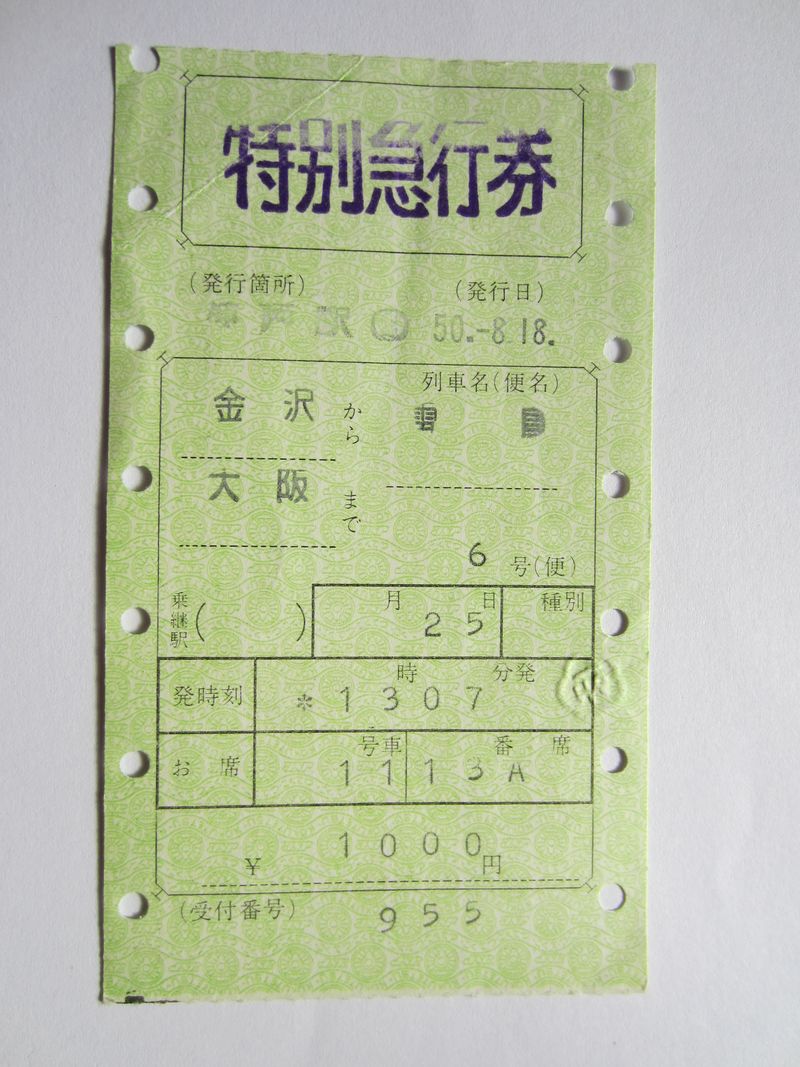 特別急行券
(発行箇所) (発行日)
駅 50.-8.18.
列車名(便名)
金沢から
大阪まで
6号(便)
乗継駅( ) 月25日 種別
発時刻 *13時07分発
お席 11号車 13A番席
¥1000円
(受付番号) 955